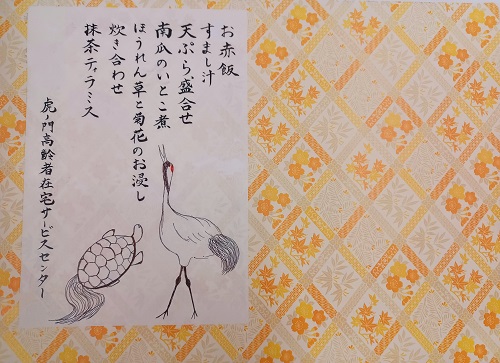 お赤飯
すまし汁
天ぷら盛合せ
南瓜のいとこ煮
ほうれん草と菊花のお浸し
炊き合わせ
抹茶ティラミス
虎ノ門高齢者在宅サービスセンター